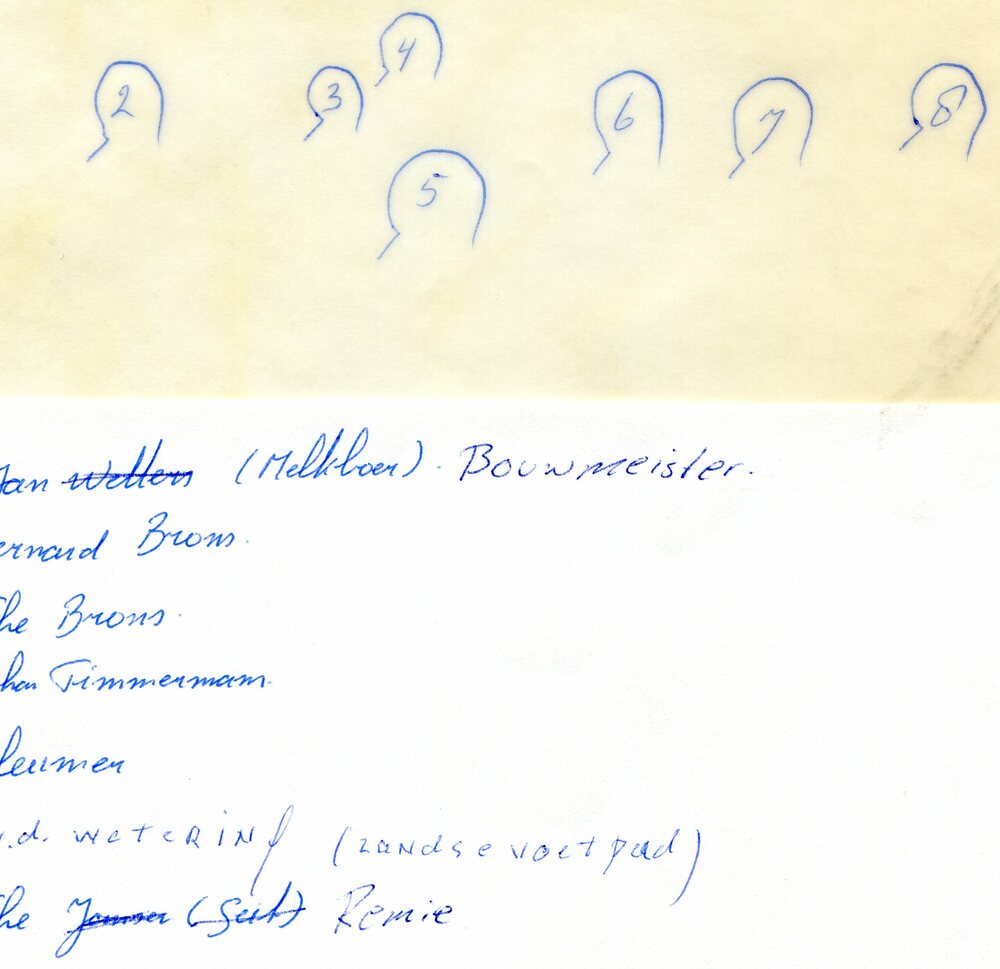 4
2 3 6 7 8
5
Jan Wetters (Melkboer). Bouwmeister.
ernard Brons.
he Brons.
han Timmermam.
leumer
v.d. WETERING (zandse voetpad)
he (Seit) Remie